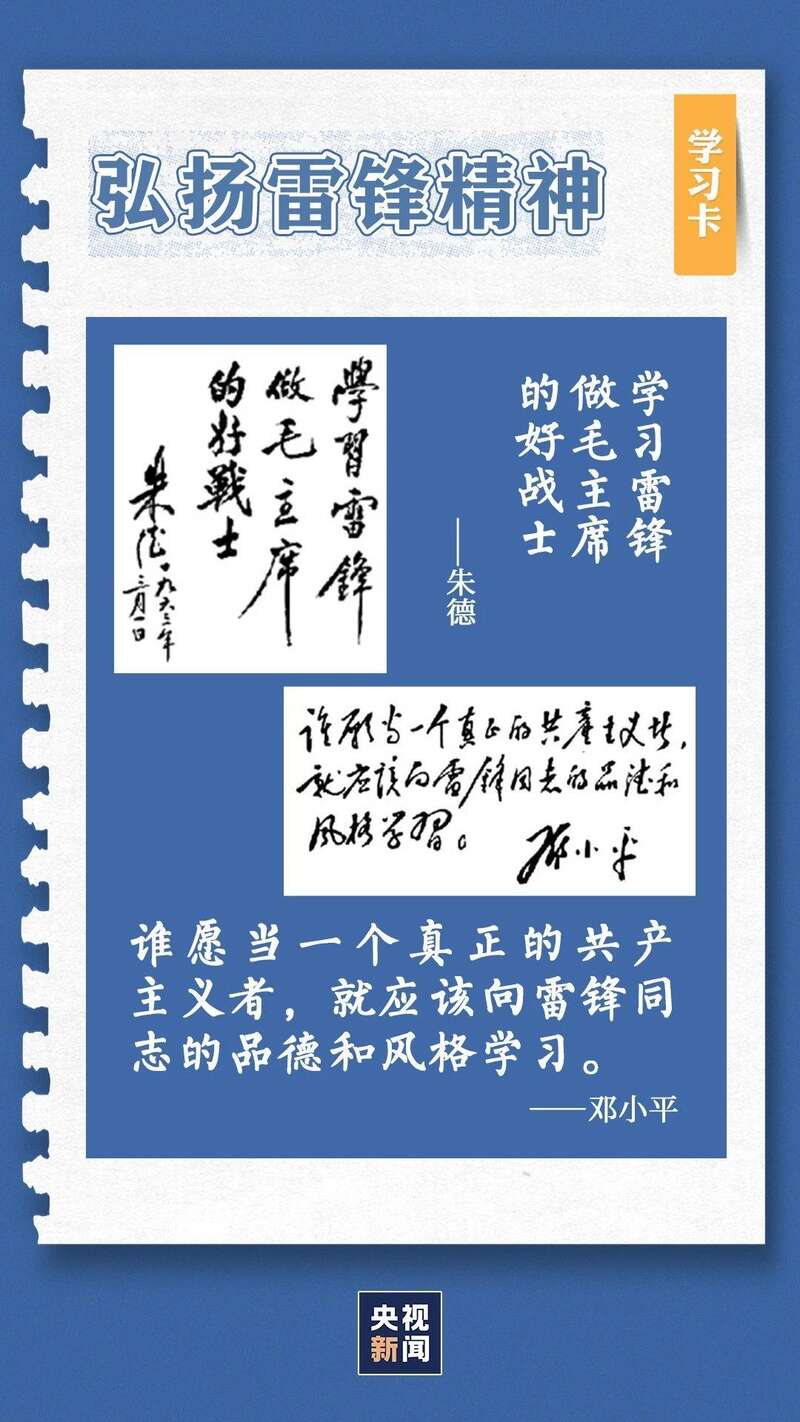 弘扬雷锋精神
学习卡
學習雷鋒
做毛主席
的好戰士
朱德
一九六三年
三月一日
学习雷锋
做毛主席
的好战士
——朱德
谁愿当一个真正的共產主义者，
就应该向雷锋同志的品德和
风格学習。
邓小平
谁愿当一个真正的共产
主义者，就应该向雷锋同
志的品德和风格学习。
——邓小平
央视
新闻